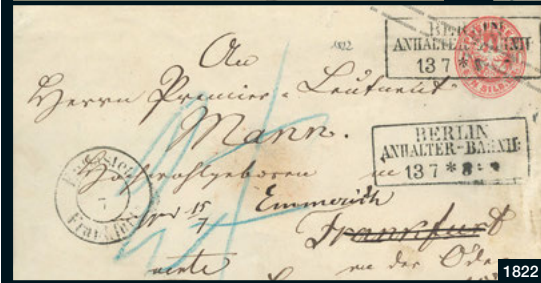 BERLIN
ANHALTER-BAHNH:
13 7 * 8
1822
An
Herrn Premier-Leutnant
Mann.
BERLIN
ANHALTER-BAHNH:
13 7 * 8
Hochwohlgeboren in
Emmerich
15/7
Frankfurt
an der Oder
1822